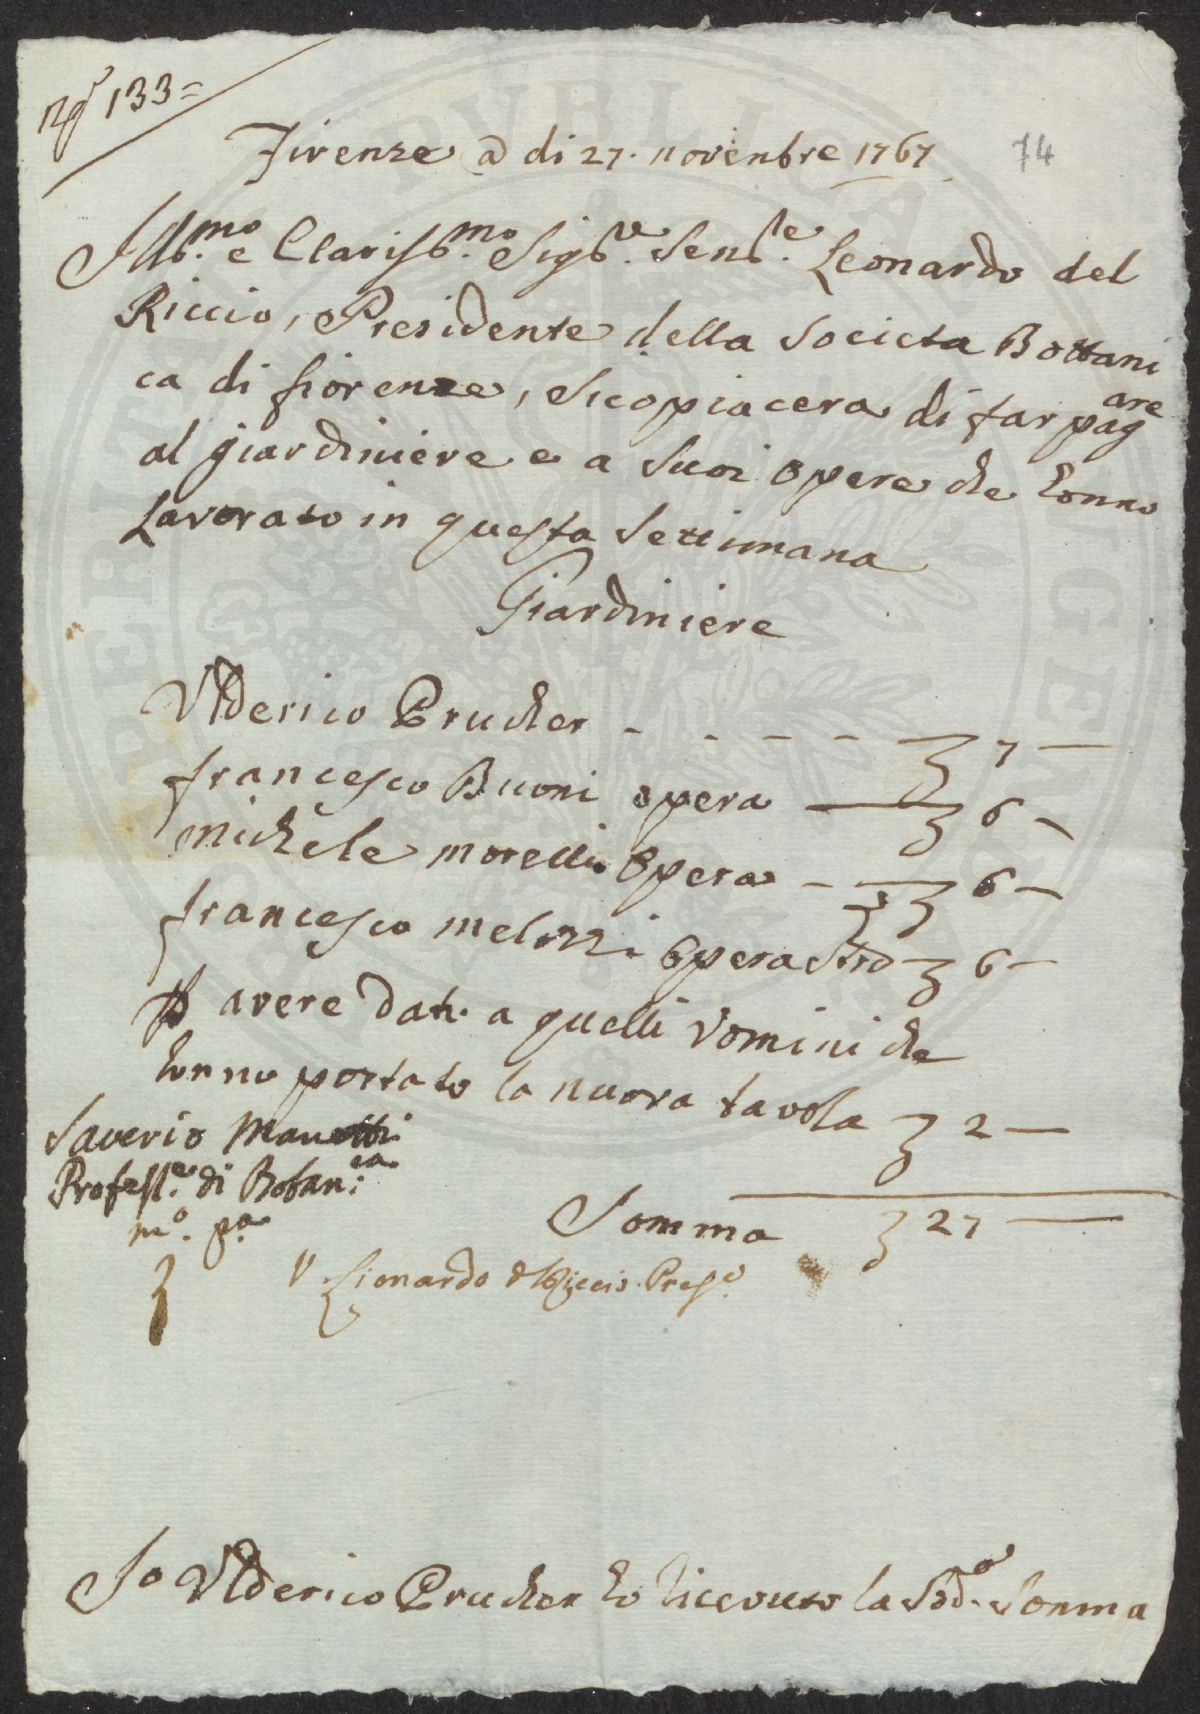 N.º 133 =
74
Firenze a di 27. novenbre 1767
Ill.mo e Clariss.mo Sig.re Sen.re Leonardo del
Riccio, Presidente della Societa Bottani
ca di fiorenze, si copiacera di far pagare
al giardiniere e a suoi opere che honno
Lavorato in questa settimana
Giardiniere
Vlderico Prucher - - - - - 7 —
francesco Buoni opera — 6 —
michele morelli opera — 6 —
francesco melozzi opera 6 —
P avere dati a quelli vomini che
honno portato la nuova tavola 2 —
Saverio Manetti
Profess.e di Botan.ca
m.o p.a
Somma 27 —
V Lionardo del Riccio Pres.e
Io Vlderico Prucher ho riceuuto la Sod.a Somma